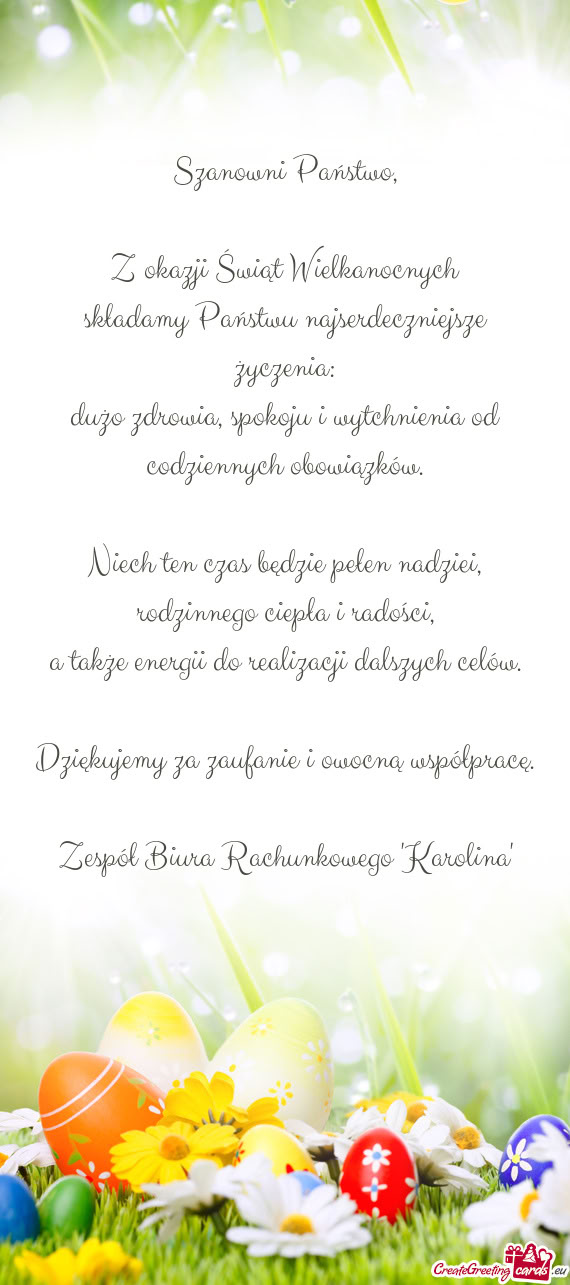 Szanowni Państwo,
Z okazji Świąt Wielkanocnych
składamy Państwu najserdeczniejsze
życzenia:
dużo zdrowia, spokoju i wytchnienia od
codziennych obowiązków.
Niech ten czas będzie pełen nadziei,
rodzinnego ciepła i radości,
a także energii do realizacji dalszych celów.
Dziękujemy za zaufanie i owocną współpracę.
Zespół Biura Rachunkowego "Karolina"
CreateGreeting cards .eu